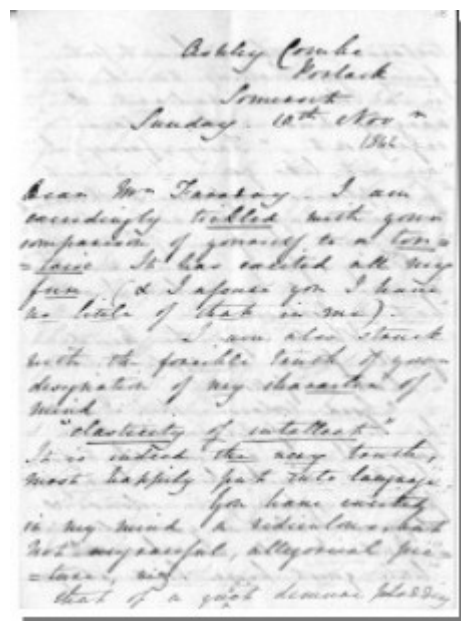 Ashley Combe
Porlock
Somerset
Sunday. 10th Novr
184
Dear Mr Faraday. I am
exceedingly tickled with your
comparison of yourself to a tor=
=toise. It has excited all my
fun (& I assure you I have
no little of that in me).
I am also struck
with the forcible truth of your
designation of my character of
mind
"elasticity of intellect".
It is indeed the very truth,
most happily put into language.
You have excited
in my mind a ridiculous, but
not ungraceful, allegorical pic=
=ture, viz:
that of a quiet demure